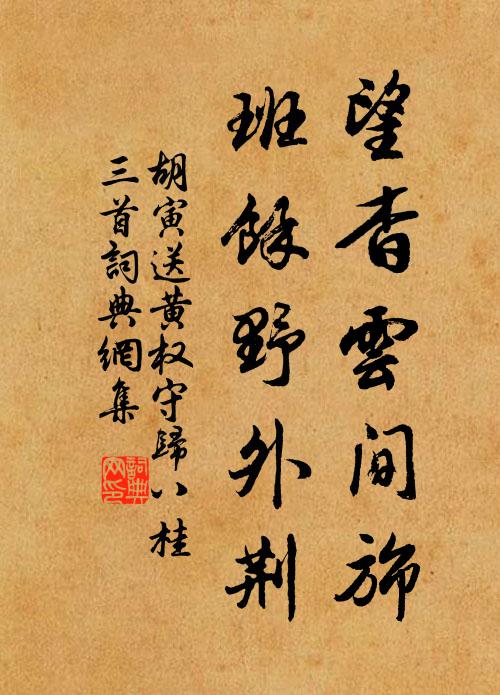 望杳雲間旆
班餘野外荆
胡寅送黄权守歸八桂
三首詞典網集
詞典网印